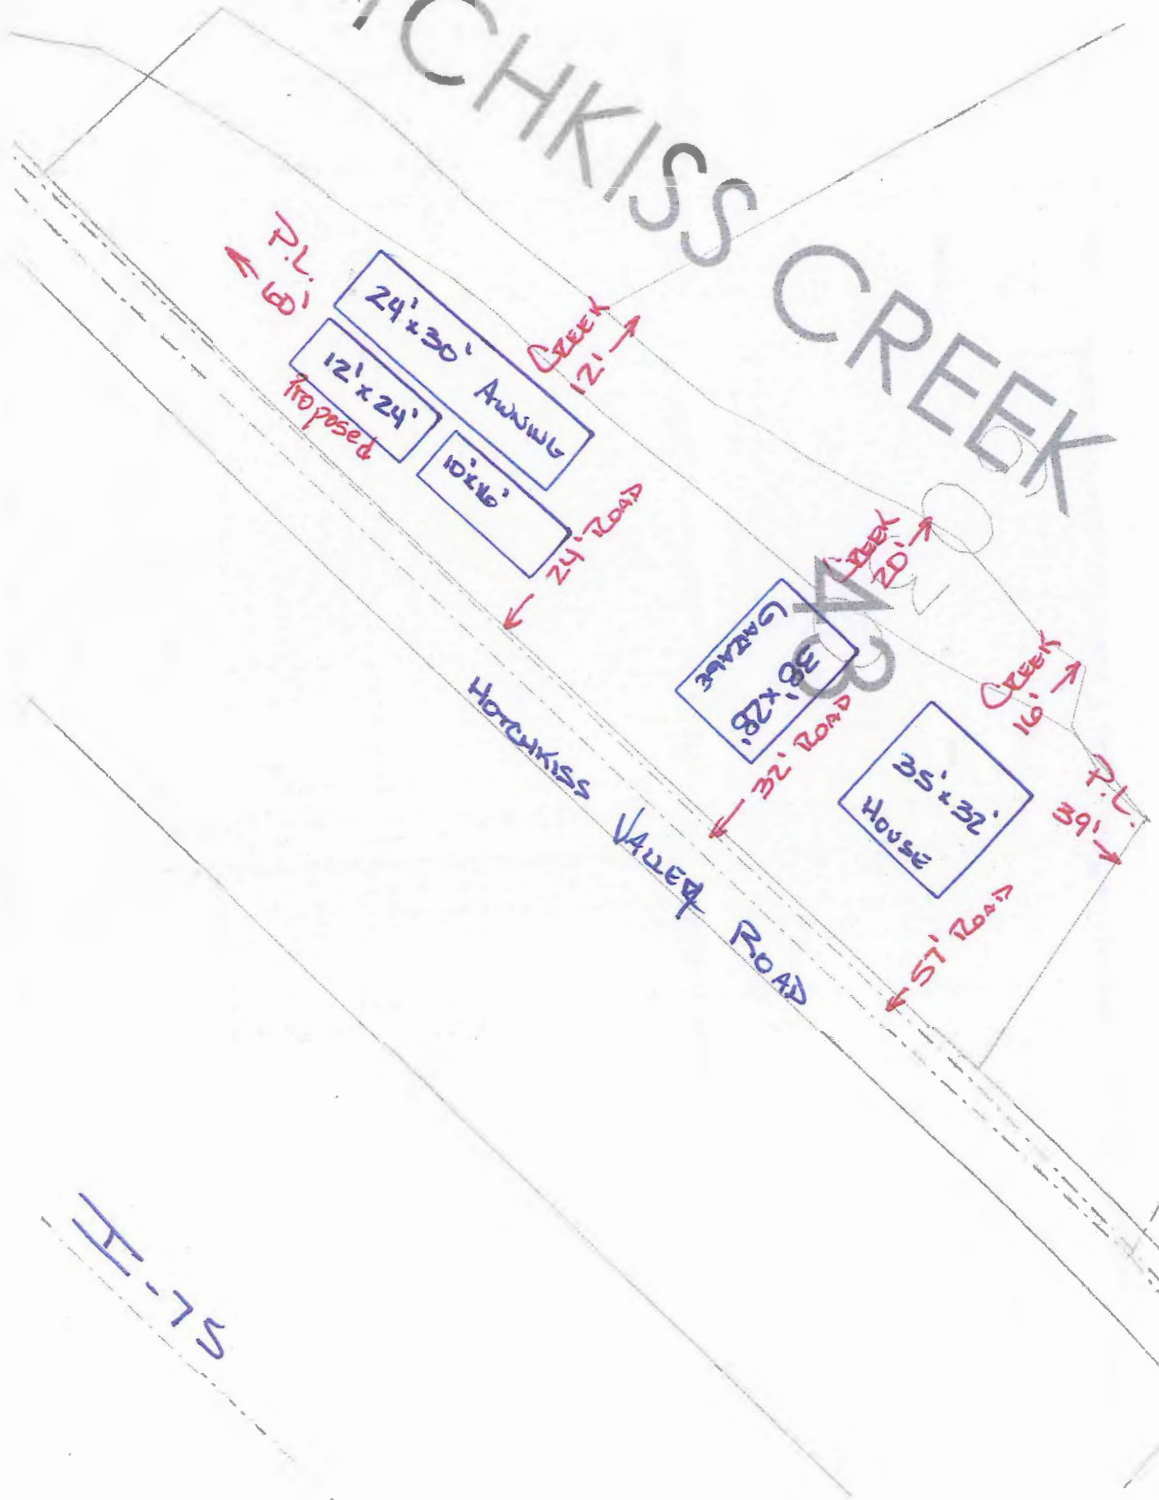 TCHKISS CREEK
P.L.
60'
24' x 30' AWNING
CREEK
12'
12' x 24'
Proposed
10'x16'
24' ROAD
CREEK
20'
43
GARAGE
38' x 28'
32' ROAD
CREEK
16'
35' x 32'
HOUSE
P.L.
39'
57' ROAD
HOTCHKISS VALLEY ROAD
I-75